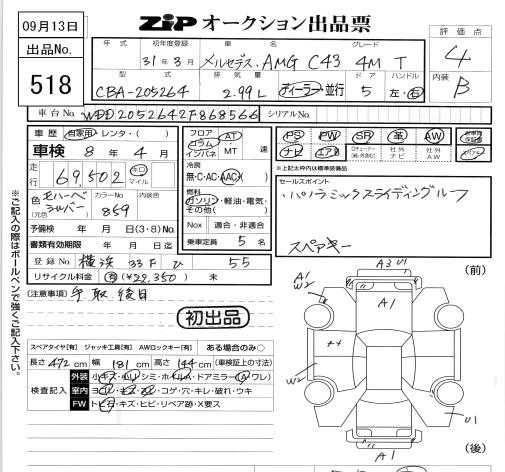 09月13日
ZIP オークション出品票
評価点
4
内装
B
出品No.
518
年式 初年度登録 車名 グレード
31年3月 メルセデス・AMG C43 4M T
型式 排気量 ドア ハンドル
CBA-205264 2.99L ディーラー・並行 5 左・右
車台No. WDD2052642F868566 シリアルNo.
車歴 自家用・レンタ・( )
車検 8年 4月
走行 69,502 キロ マイル
色(元色) モハーベシルバー カラーNo 859 内装色
予備検 年 月 日(3・8)No.
書類有効期限 年 月 日迄
登録No. 横浜 33F ひ 55
リサイクル料金 有(¥22,350) 未
フロア コラム インパネ AT ・MT 速
冷房
無・C・AC・AAC
燃料
ガソリン・軽油・電気・その他( )
Nox 適合・非適合
乗車定員 5 名
PS PW SR 革 AW 新車時保証書
ナビ エアB TVチューナー(純・外含む) 社外ナビ 社外AW
*上記太枠内は標準装備品
セールスポイント
・パノラミックスライディングルーフ
スペアキー
[注意事項] 下取後日
初出品
スペアタイヤ[有] ジャッキ工具[有] AWロックキー[有] ある場合のみ○
長さ 472 cm 幅 181 cm 高さ 144 cm (車検証上の寸法)
検査記入
外装 小キズ・ハリ・シミ・ホイルA・ドアミラー(A・ワレ)
室内 ヨゴレ・キズ・スレ・コゲ・穴・キレ・破れ・ウキ
FW トビ石・キズ・ヒビ・リペア跡・X要ス
※ご記入の際はボールペンで強くご記入下さい。
(前)
A3 U1
A1
W2
A1
W2
U1
A1
(後)